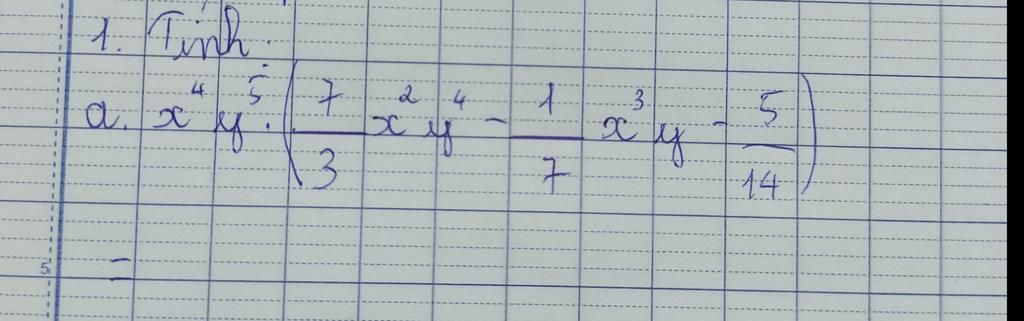 1. Tính:
a. x⁴y⁵.(7/3 x²y⁴ - 1/7 x³y - 5/14)
5
=